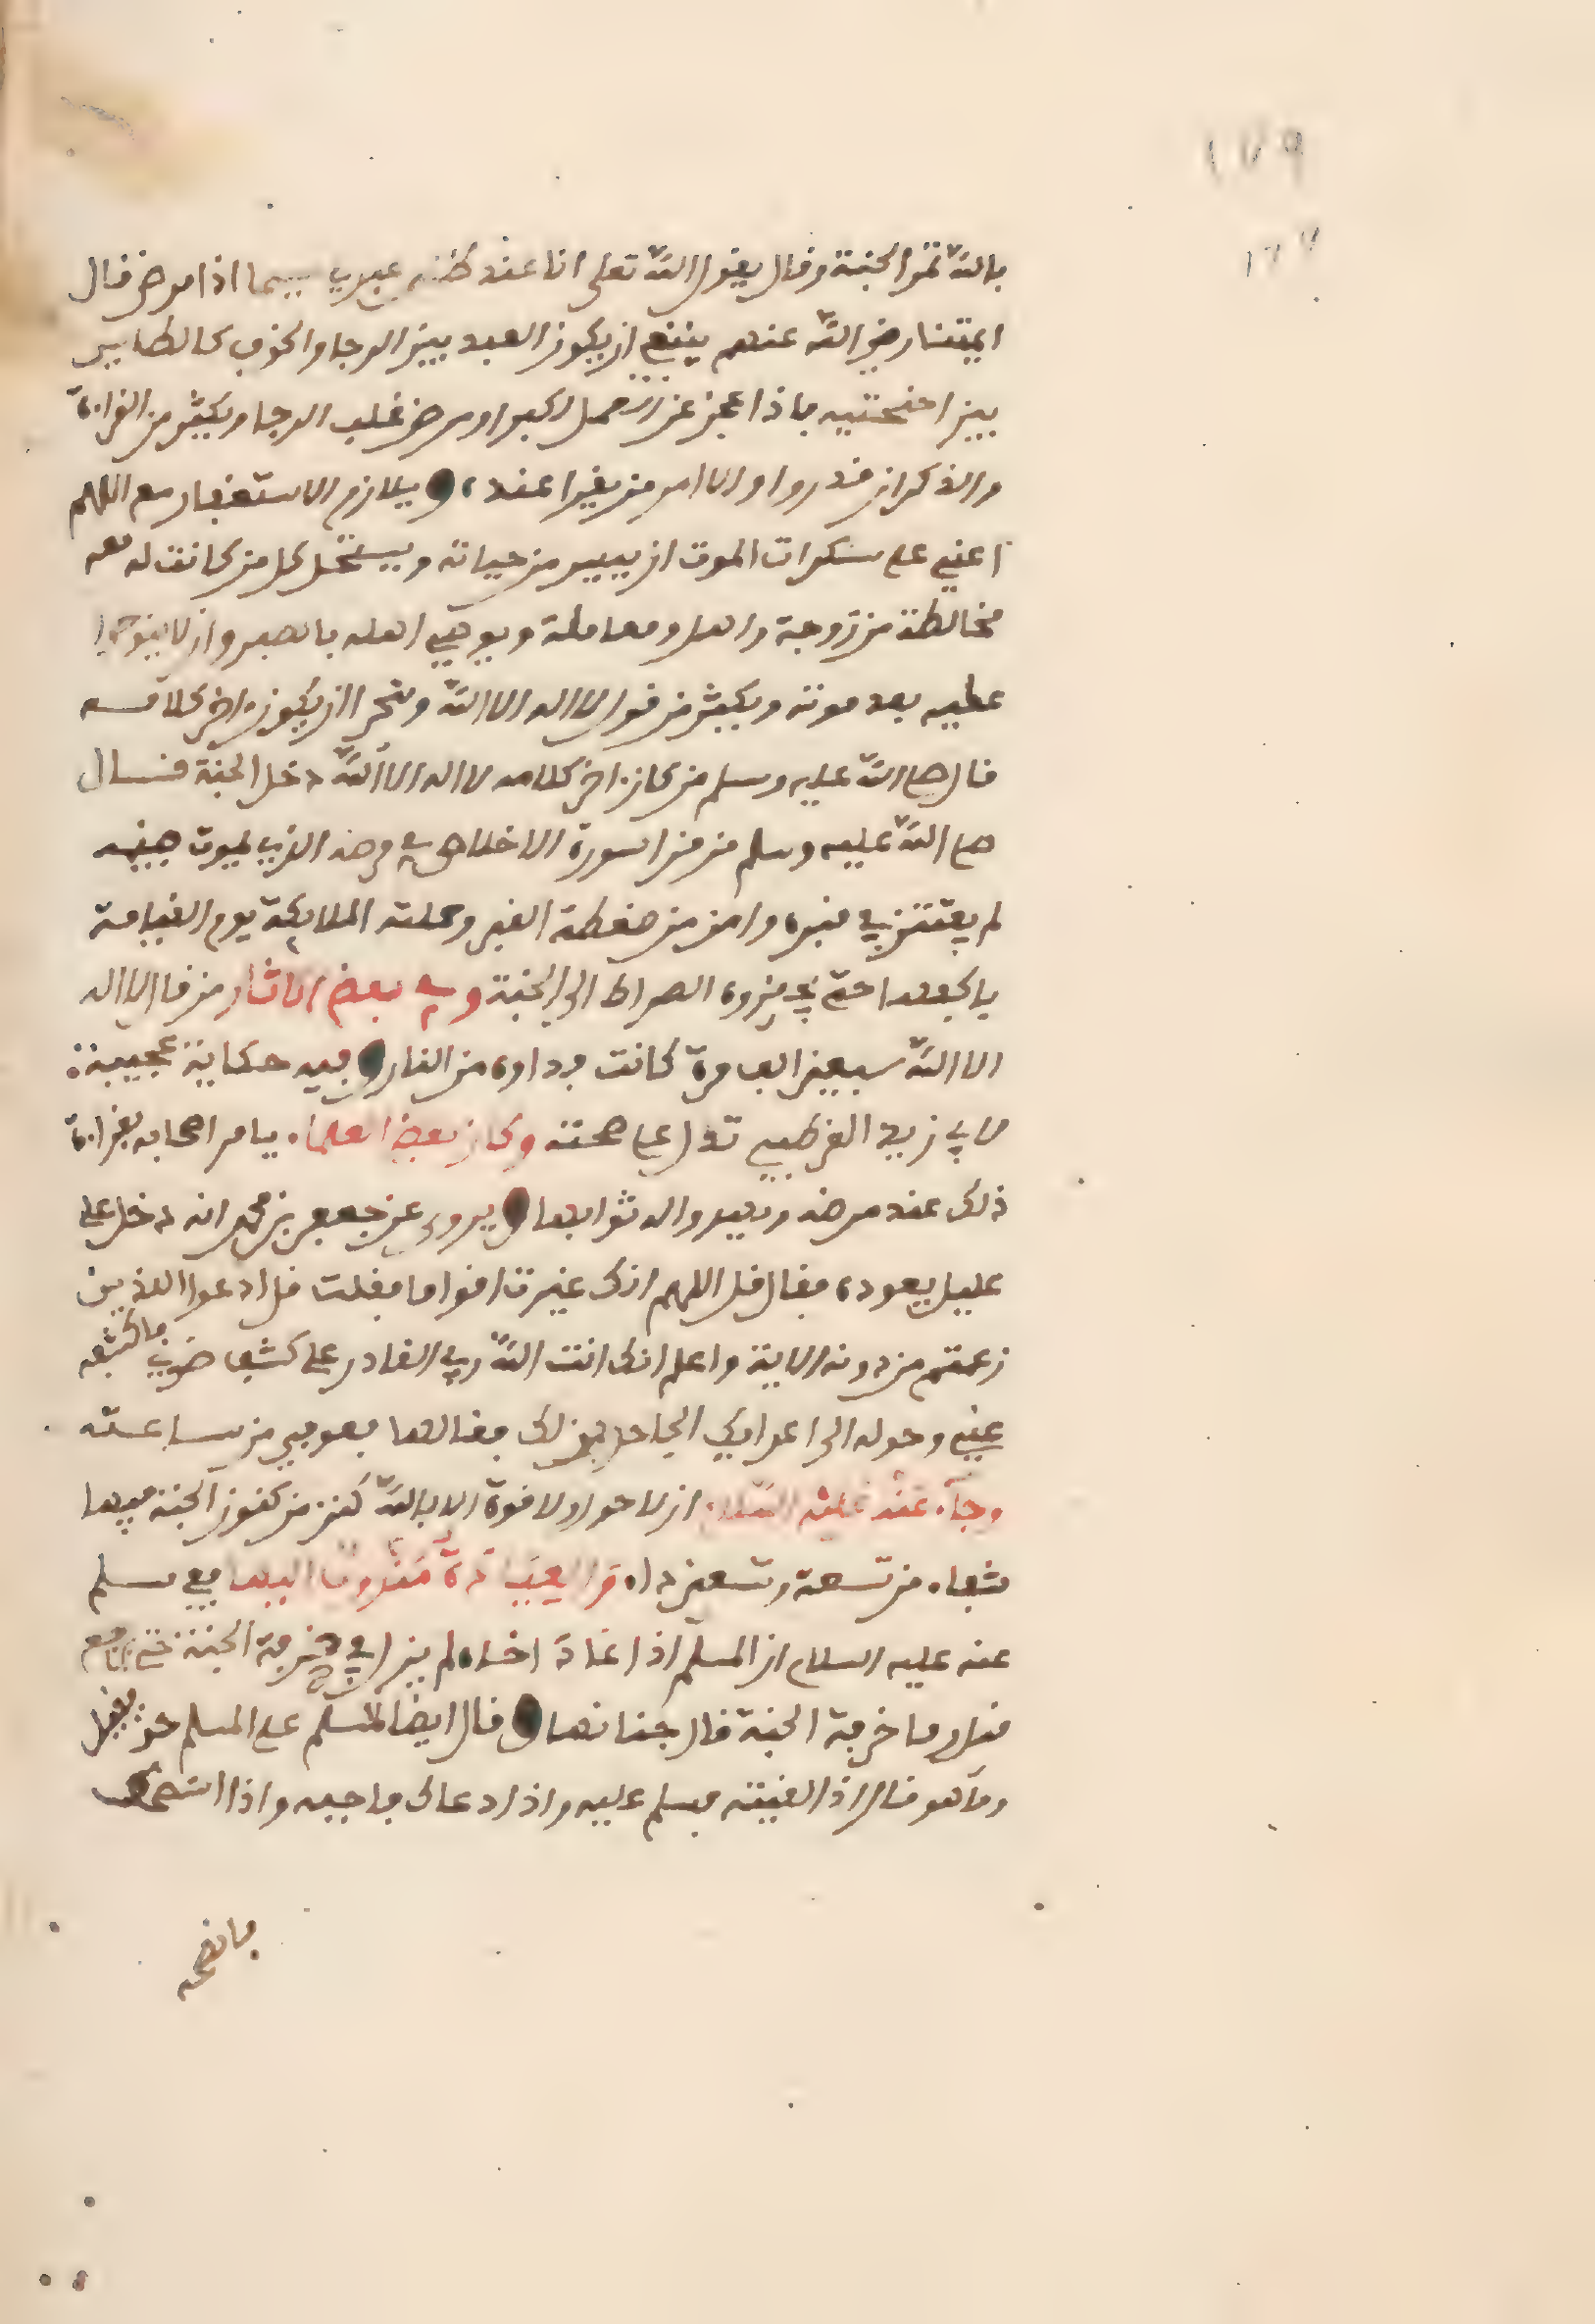 ١٧٩
١٦٧
بالله ثمن الجنة وقال يقول الله تعلى انا عند ظن عبدي بي سيما اذا مرض قال
ايمتنا رضي الله عنهم ينبغي ان يكون العبد بين الرجا والخوف كالطاير
بين اجنحتيه فاذا عجز عن العمل لكبر او مرض غلب الرجا ويكثر من القراءة
والذكر ان قدر والا امر من يقرا عنده ويلازم الاستغفار مع اللهم
اعني على سكرات الموت ان ييس من حياته ويستحل كل من كانت له معه
مخالطة من زوجة واهل ومعاملة ويوصي اهله بالصبر وان لا ينوحوا
عليه بعد موته ويكثر من قول لا اله الا الله ويتحرا ان يكون اخر كلامه
قال صلى الله عليه وسلم من كان اخر كلامه لا اله الا الله دخل الجنة وقال
صلى الله عليه وسلم من قرا سورة الاخلاص في مرضه الذي يموت فيه
لم يفتتن في قبره وامن من ضغطة القبر وحملته الملايكة يوم القيامة
باكفها حتى تجيزه الصراط الى الجنة وفي بعض الاثار من قال لا اله
الا الله سبعين الف مرة كانت فداوه من النار وفيه حكاية عجيبة
لابي زيد القرطبي تدل على صحته وكان بعض العلماء يامر اصحابه بقراءة
ذلك عند مرضه ويهدوا له ثوابها ويروى عن جعفر بن محمد انه دخل على
عليل يعوده فقال قل اللهم انك عيرت اقواما فقلت قل ادعوا الذين
زعمتم من دونه الاية واعلم انك انت الله ربي القادر على كشف ضري فاكشفه
عني وحوله الى اعدايك الجاحدين لك فقالها فعوفي من ساعته
وجاء عنه عليه السلام ان لا حول ولا قوة الا بالله كنز من كنوز الجنة فيها
شفاء من تسعة وتسعين داء والعيادة مندوب اليها ففي مسلم
عنه عليه السلام ان المسلم اذا عاد اخاه لم يزل في خرفة الجنة حتى يرجع
قيل وما خرفة الجنة قال جناها وقال ايضا للمسلم على المسلم حق فقيل
وما هو قال اذا لقيته فسلم عليه واذا دعاك فاجبه واذا استنصحك
فانصحه